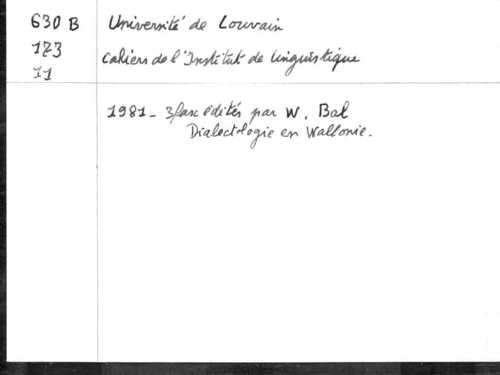 630 B Université de Louvain
173 Cahiers de l'Institut de linguistique
11
1981 - 3 fasc édités par W. Bal
Dialectologie en Wallonie.